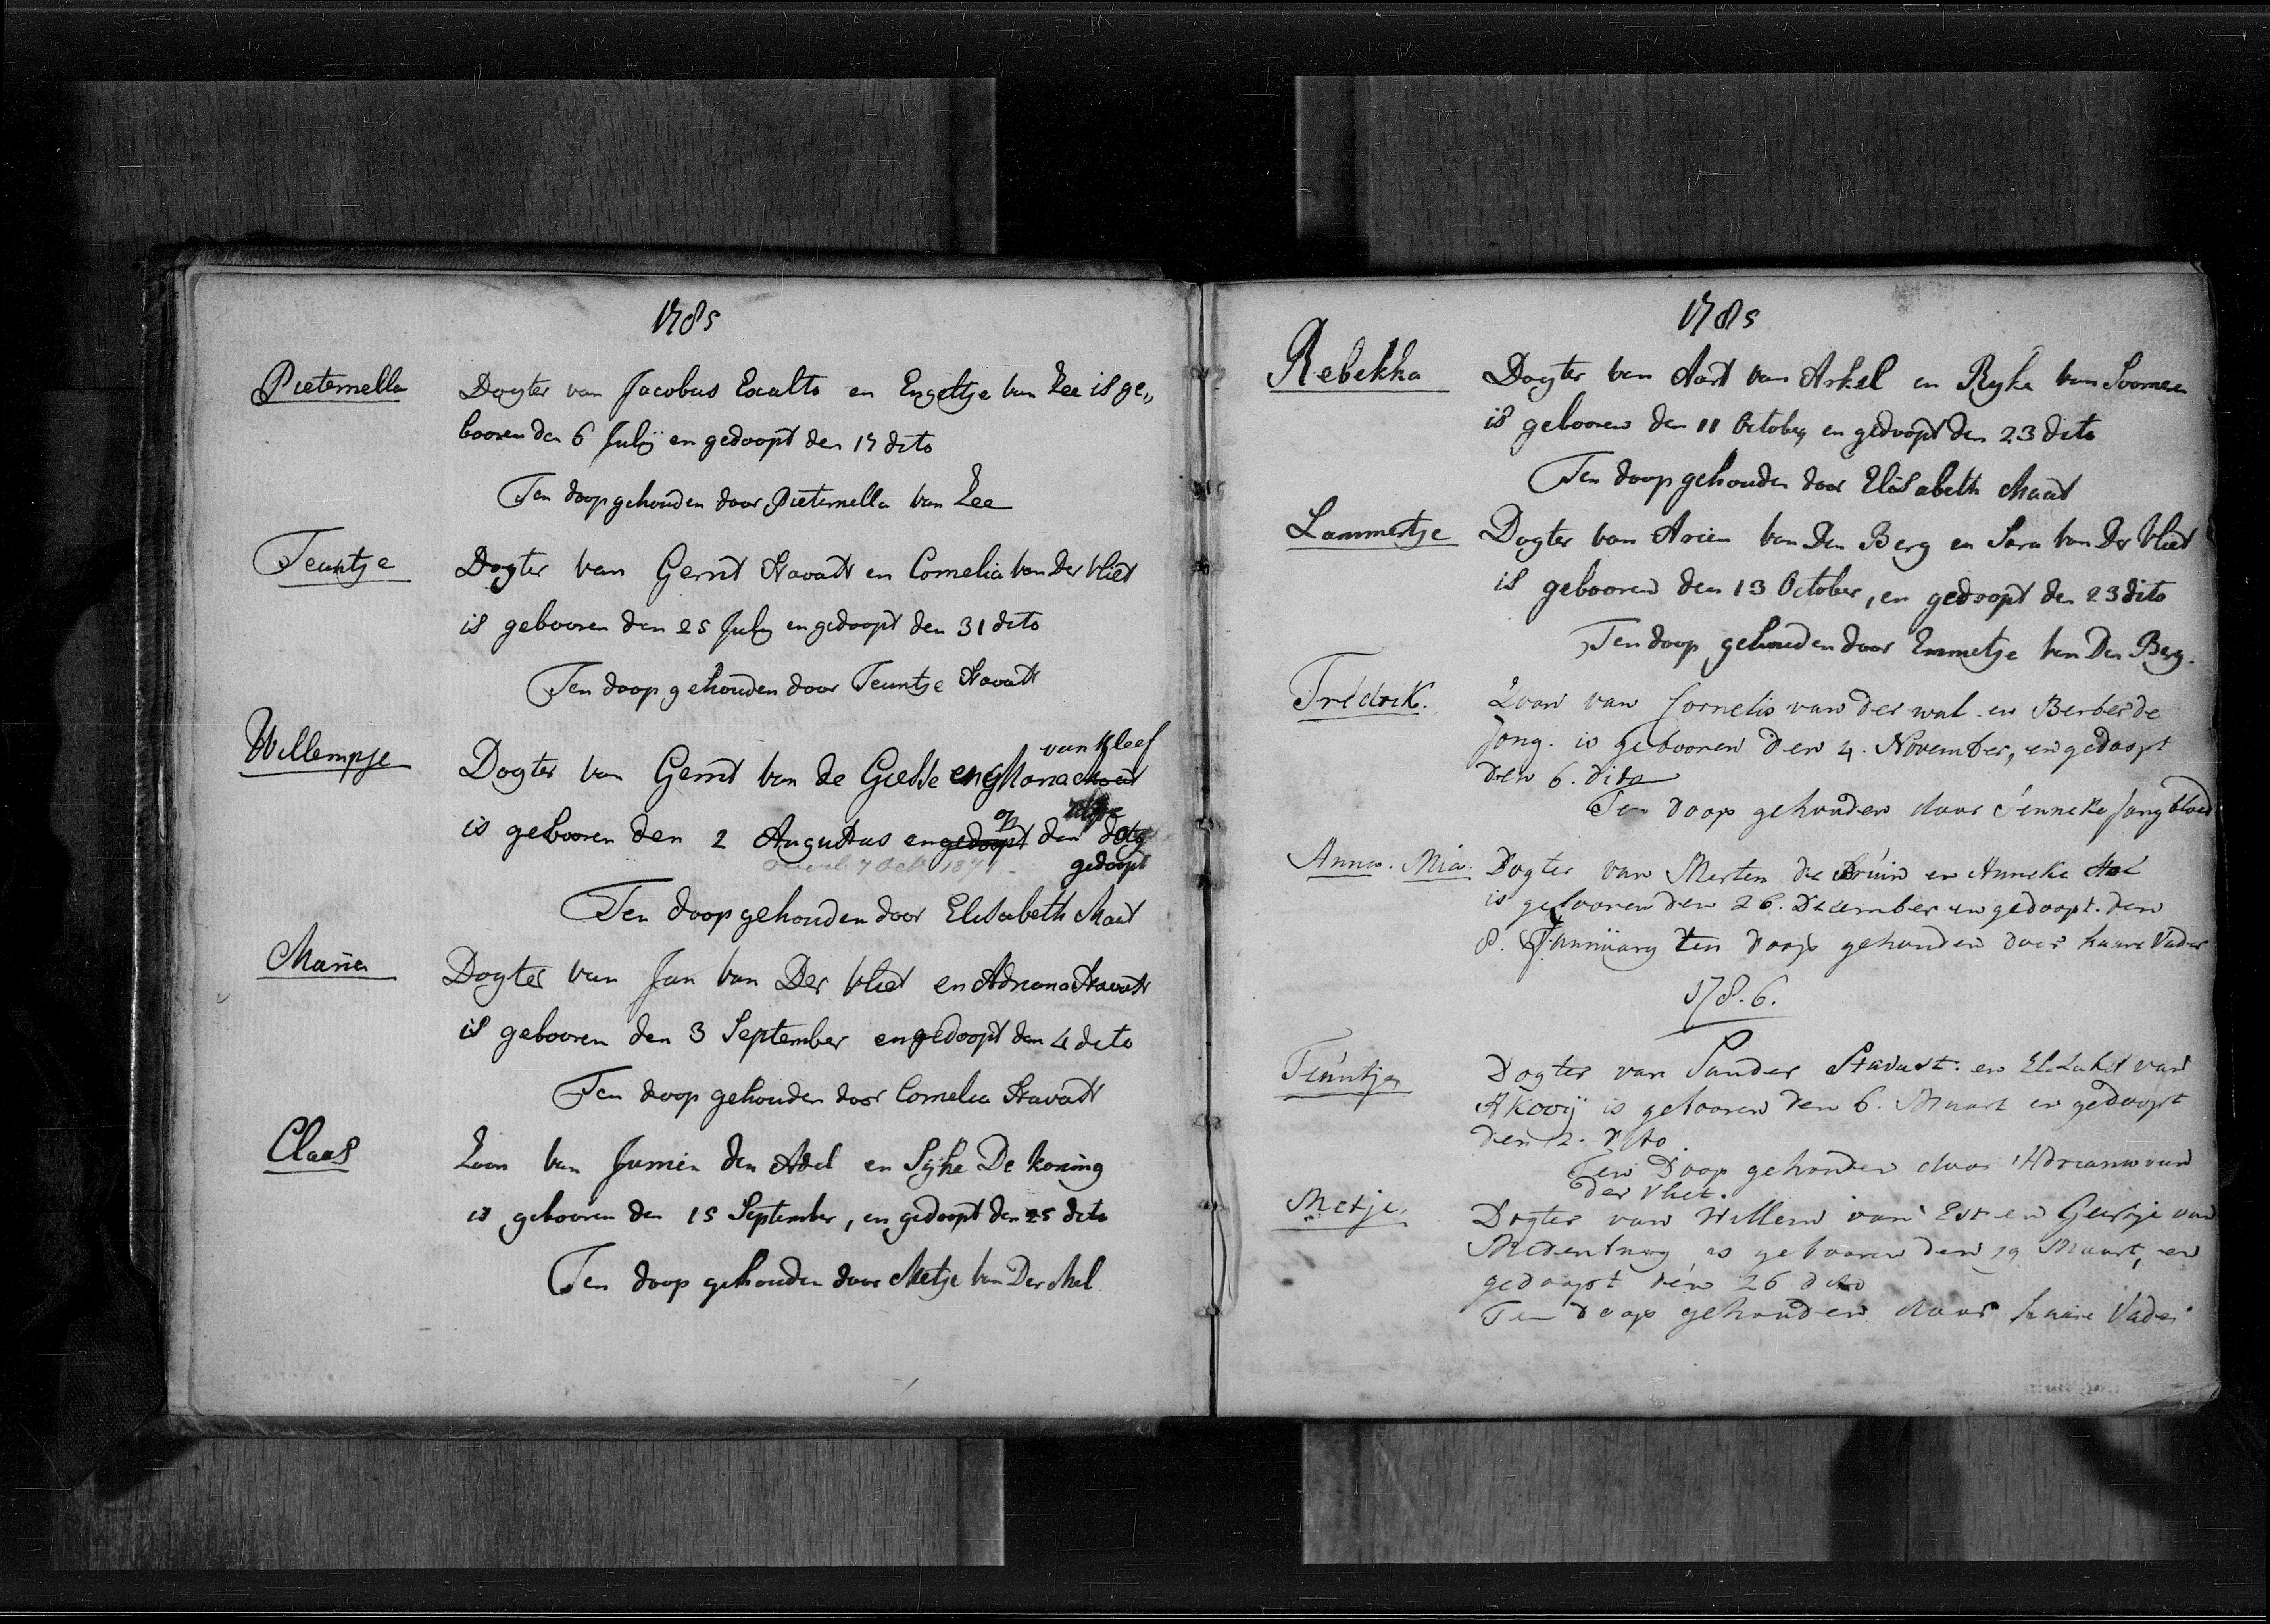 1785
Pieternella Dogter van Jacobus Exalto en Engeltje van Zee is ge„
booren den 6 Julij en gedoopt den 17 dito
Ten doop gehouden door Pieternella van Zee
Teuntje Dogter van Gerrit Stavast en Cornelia van der Vliet
is gebooren den 25 July en gedoopt den 31 dito
Ten doop gehouden door Teuntje Stavast
van Kleef
Willempje Dogter van Gerrit van de Giesse en
is gebooren den 2 Augustus en gedoopt op den
gedoopt
Ten doop gehouden door Elisabeth Maat
Maria Dogter van Jan van Der Vliet en Adriana Stavast
is gebooren den 3 September en gedoopt den 4 dito
Ten doop gehouden door Cornelia Stavast
Claas Zoon van Jurrien den Adel en Sijke De koning
is gebooren den 15 September, en gedoopt den 25 dito
Ten doop gehouden door Metje van Der Mel
1785
Rebekka Dogter van Aart van Arkel en Ryke van Soomeren
is gebooren den 11 October en gedoopt den 23 dito
Ten doop gehouden door Elisabeth Maat
Lammertje Dogter van Arien van Den Berg en Sara van Der Vliet
is gebooren den 13 October, en gedoopt den 23 dito
Ten doop gehouden door Emmetje van Den Berg.
Fredrik. Zoon van Cornelis van der wal en Berber de
Jong. is gebooren den 4. November, en gedoopt
den 6. dito
Ten doop gehouden door Jenneke Jongbloed
Anna. Mia. Dogter van Merten de Bruin en Anneke
is gebooren den 26. December en gedoopt. den
8. Januuary ten doop gehouden door haare Vader
178.6.
Teuntje Dogter van Sander Stavast. en Elizabet van
Akooij is gebooren den 6. Maart en gedoopt
den 12. dito.
Ten Doop gehouden door Adriana van
der Vliet.
Metje. Dogter van Willem van Est en Geertje van
Medenburg is gebooren den 19 Maart, en
gedoopt den 26 dito
Ten doop gehouden door haare Vader